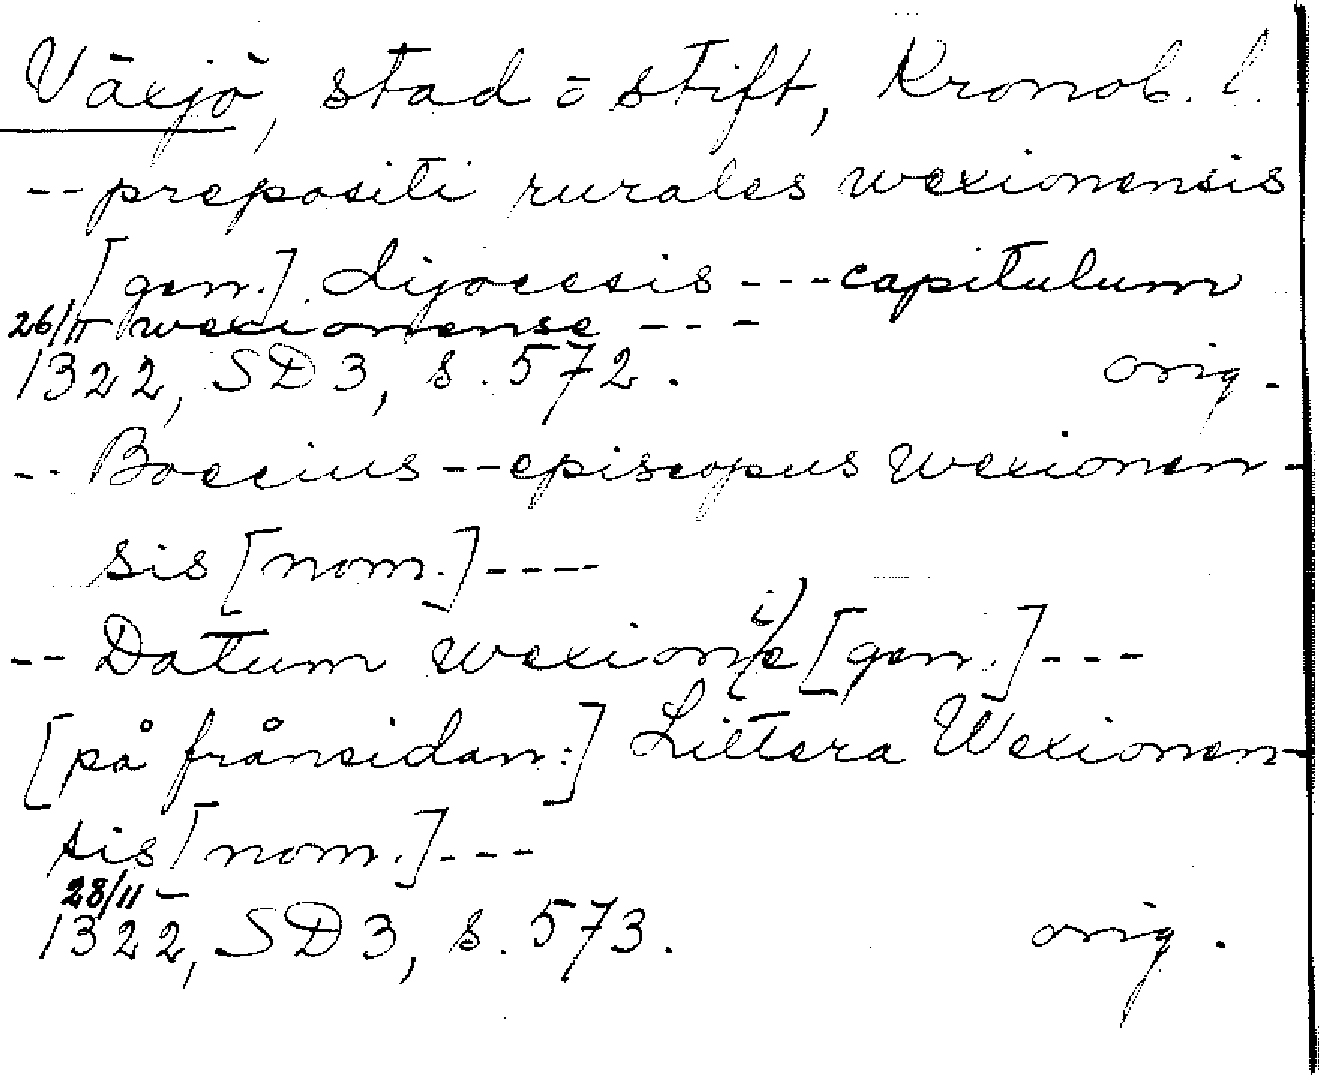 Växjö, stad o stift, Kronob. l.
-- prepositi rurales wexionensis
[gen.] dyocesis --- capitulum
26/11 wexionense ---
1322, SD 3, s. 572. orig.
-- Boecius -- episcopus wexionen-
sis [nom.] ----
-- Datum wexioni/e [gen.] ---
[på frånsidan:] Littera Wexionen-
sis [nom.] ---
28/11
1322, SD 3, s. 573. orig.